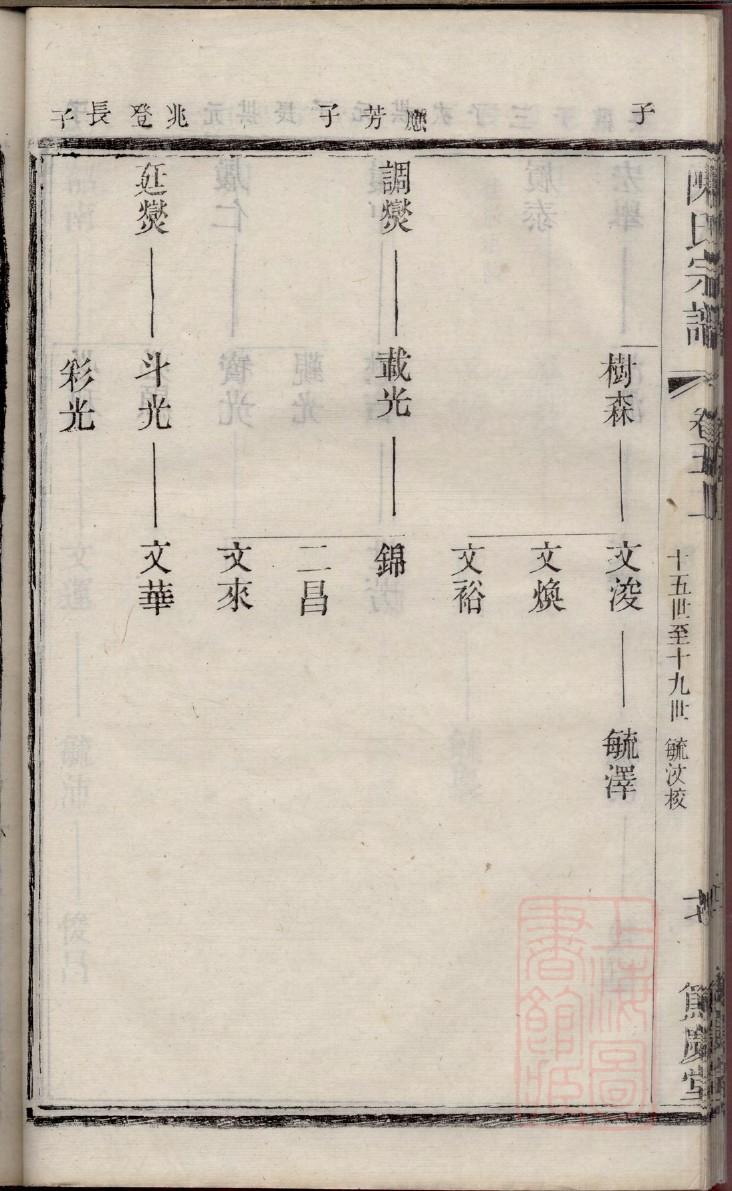 陳氏宗譜
卷五上
十五世至十九世 毓汶校
篤慶堂
子
樹森
文浚
毓澤
文煥
文裕
應芳子
調燮
載光
錦
二昌
文來
兆登長子
延燮
斗光
文華
彩光
上海圖書館